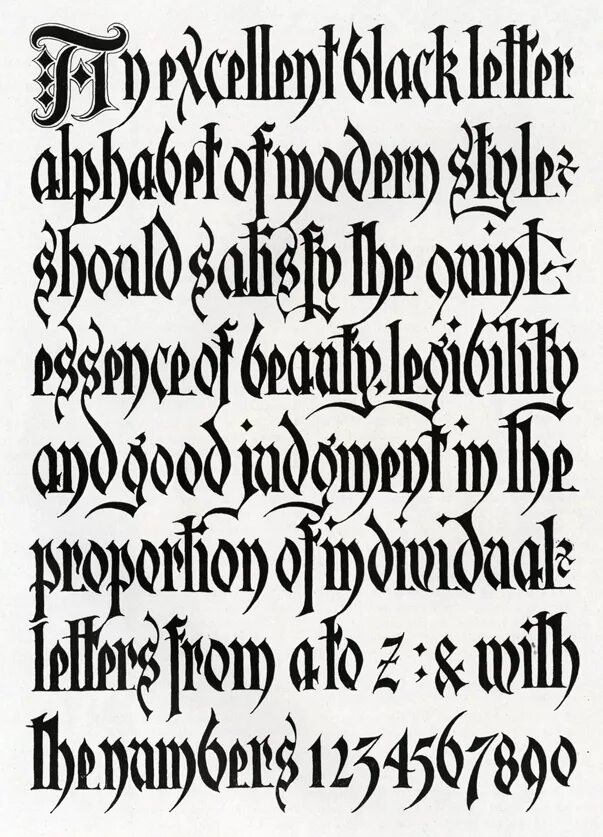 An excellent black letter
alphabet of modern style
should satisfy the quint
essence of beauty, legibility
and good judgment in the
proportion of individual
letters from a to z : & with
the numbers 1234567890